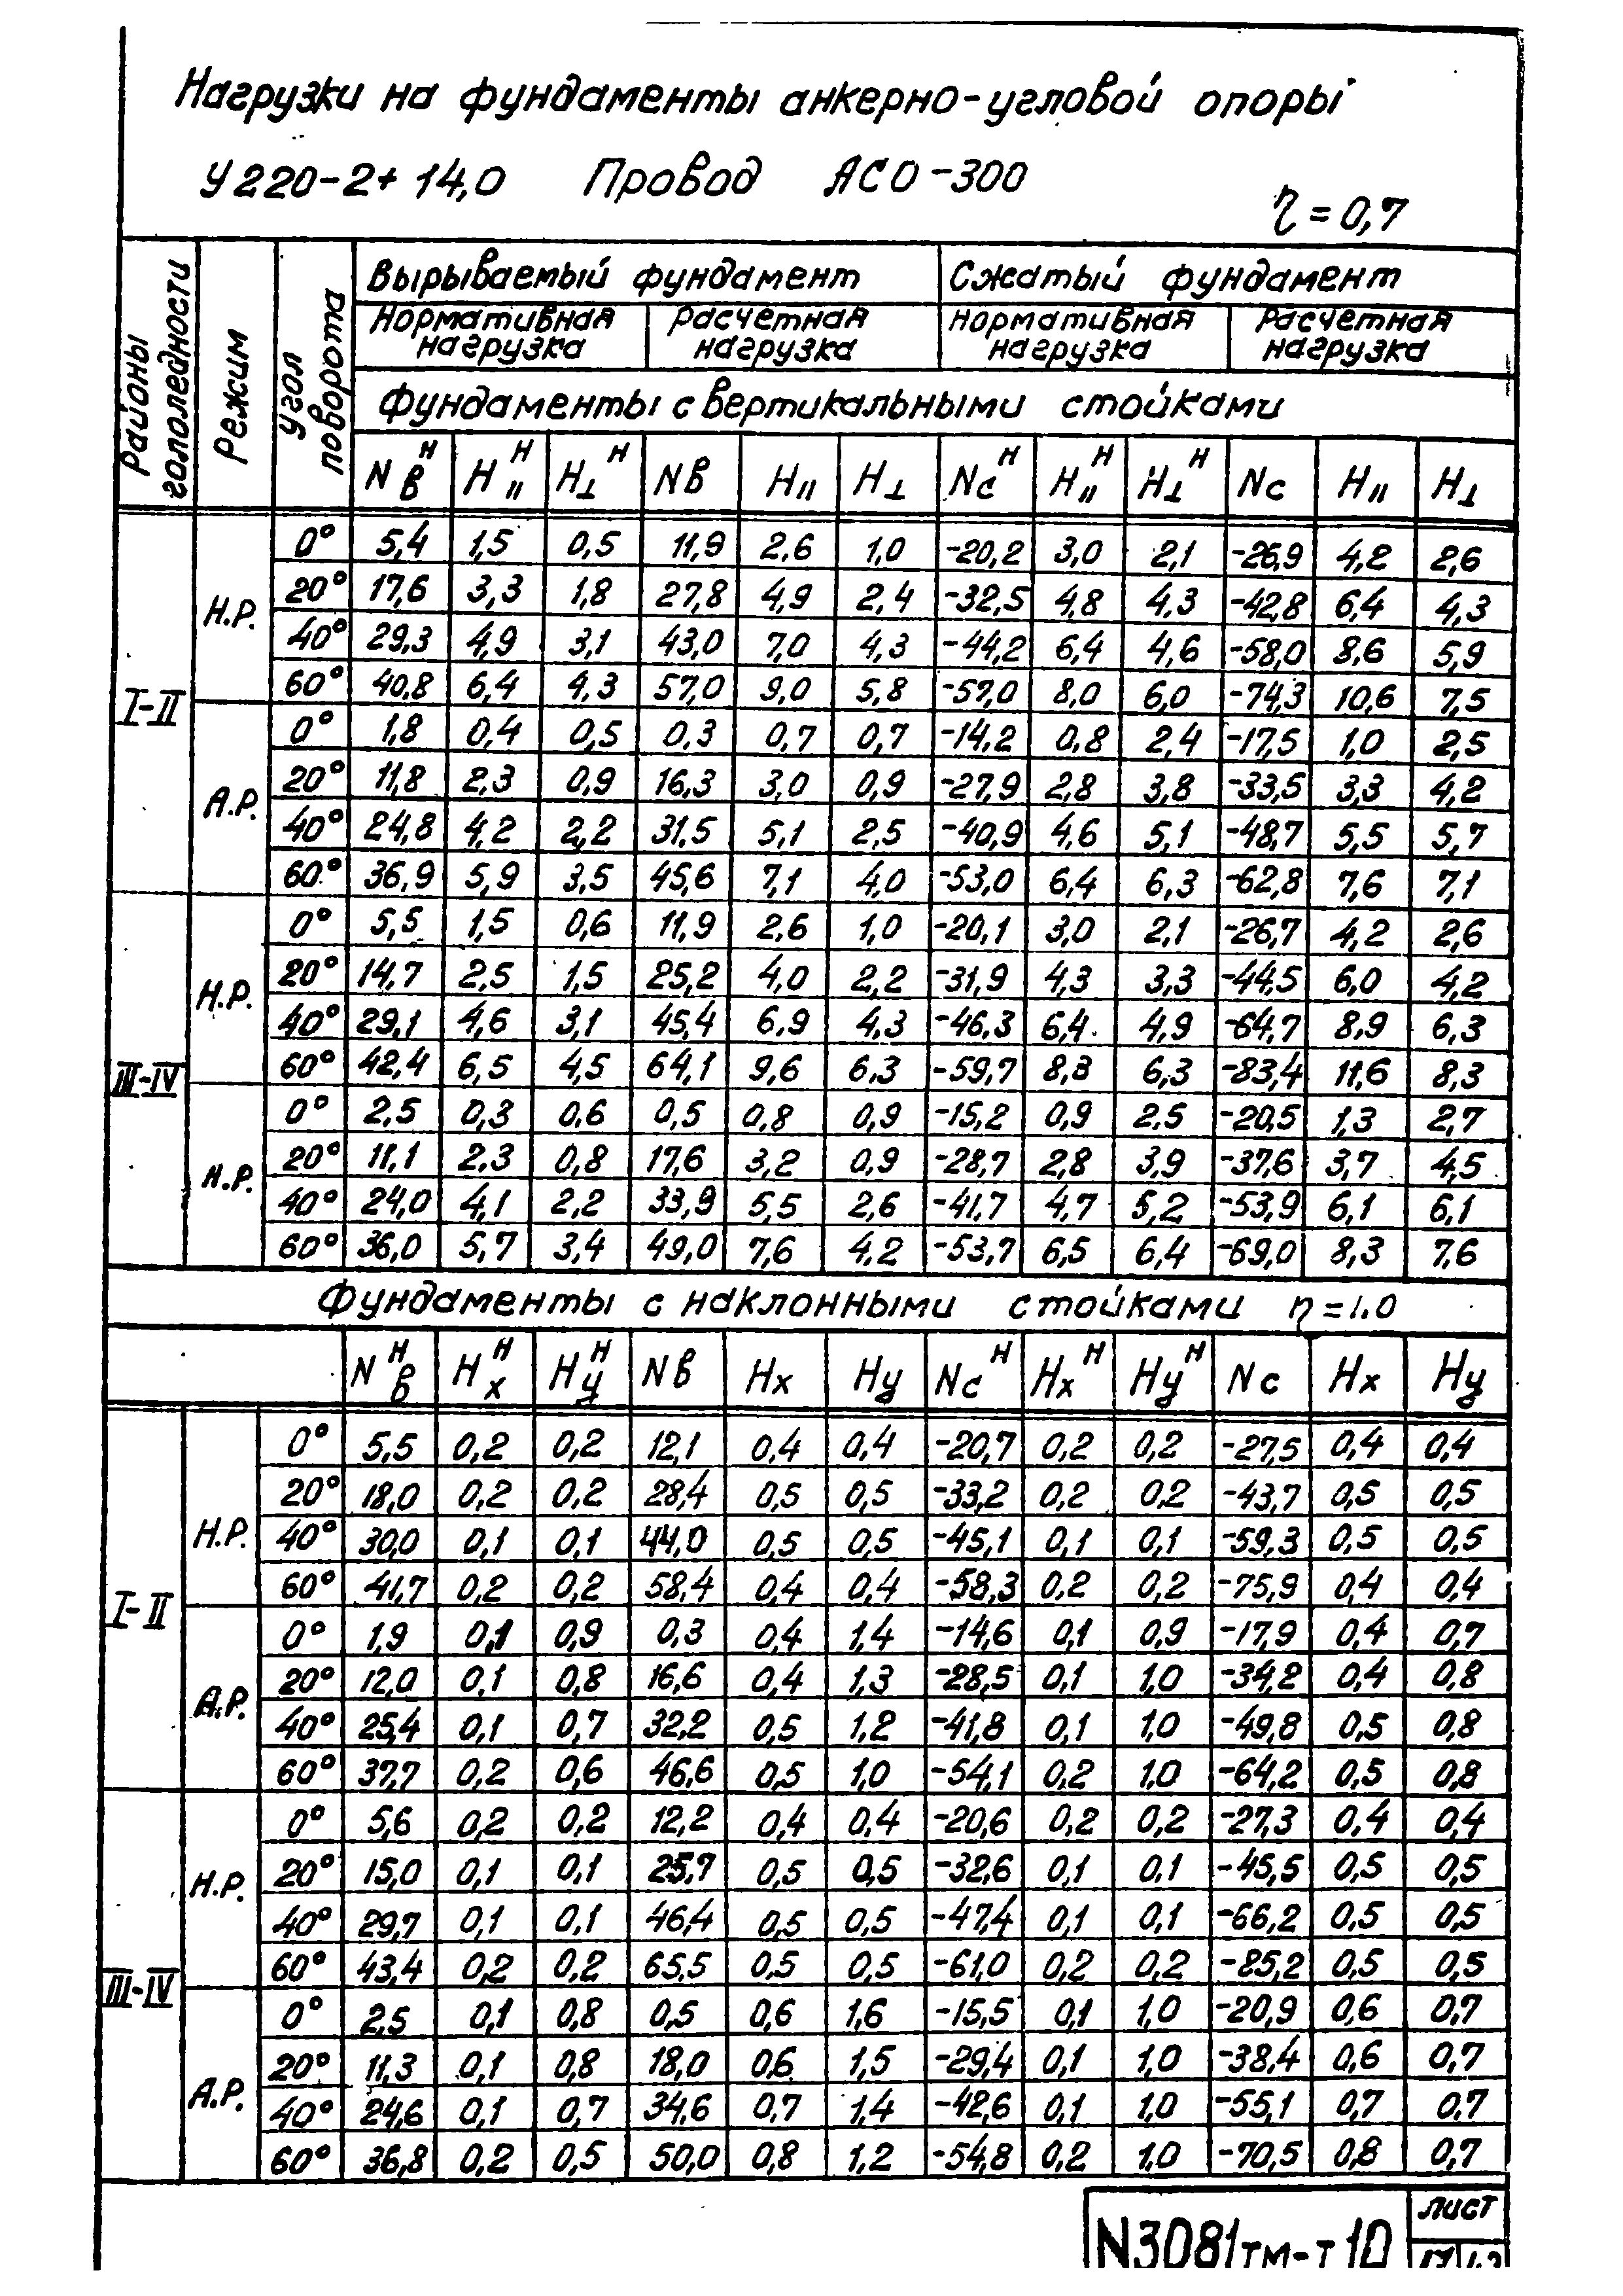 Нагрузки на фундаменты анкерно-угловой опоры
У220-2+14,0 Провод АСО-300
η = 0,7
Районы гололедности Режим Угол поворота Вырываемый фундамент Сжатый фундамент
Нормативная нагрузка Расчетная нагрузка Нормативная нагрузка Расчетная нагрузка
Фундаменты с вертикальными стойками
Nв^н H||^н H⊥^н Nв H|| H⊥ Nс^н H||^н H⊥^н Nс H|| H⊥
I-II Н.Р. 0° 5,4 1,5 0,5 11,9 2,6 1,0 -20,2 3,0 2,1 -26,9 4,2 2,6
20° 17,6 3,3 1,8 27,8 4,9 2,4 -32,5 4,8 4,3 -42,8 6,4 4,3
40° 29,3 4,9 3,1 43,0 7,0 4,3 -44,2 6,4 4,6 -58,0 8,6 5,9
60° 40,8 6,4 4,3 57,0 9,0 5,8 -57,0 8,0 6,0 -74,3 10,6 7,5
А.Р. 0° 1,8 0,4 0,5 0,3 0,7 0,7 -14,2 0,8 2,4 -17,5 1,0 2,5
20° 11,8 2,3 0,9 16,3 3,0 0,9 -27,9 2,8 3,8 -33,5 3,3 4,2
40° 24,8 4,2 2,2 31,5 5,1 2,5 -40,9 4,6 5,1 -48,7 5,5 5,7
60° 36,9 5,9 3,5 45,6 7,1 4,0 -53,0 6,4 6,3 -62,8 7,6 7,1
III-IV Н.Р. 0° 5,5 1,5 0,6 11,9 2,6 1,0 -20,1 3,0 2,1 -26,7 4,2 2,6
20° 14,7 2,5 1,5 25,2 4,0 2,2 -31,9 4,3 3,3 -44,5 6,0 4,2
40° 29,1 4,6 3,1 45,4 6,9 4,3 -46,3 6,4 4,9 -64,7 8,9 6,3
60° 42,4 6,5 4,5 64,1 9,6 6,3 -59,7 8,3 6,3 -83,4 11,6 8,3
Н.Р. 0° 2,5 0,3 0,6 0,5 0,8 0,9 -15,2 0,9 2,5 -20,5 1,3 2,7
20° 11,1 2,3 0,8 17,6 3,2 0,9 -28,7 2,8 3,9 -37,6 3,7 4,5
40° 24,0 4,1 2,2 33,9 5,5 2,6 -41,7 4,7 5,2 -53,9 6,1 6,1
60° 36,0 5,7 3,4 49,0 7,6 4,2 -53,7 6,5 6,4 -69,0 8,3 7,6
Фундаменты с наклонными стойками η=1.0
Nв^н Hх^н Hу^н Nв Hх Hу Nс^н Hх^н Hу^н Nс Hх Hу
I-II Н.Р. 0° 5,5 0,2 0,2 12,1 0,4 0,4 -20,7 0,2 0,2 -27,5 0,4 0,4
20° 18,0 0,2 0,2 28,4 0,5 0,5 -33,2 0,2 0,2 -43,7 0,5 0,5
40° 30,0 0,1 0,1 44,0 0,5 0,5 -45,1 0,1 0,1 -59,3 0,5 0,5
60° 41,7 0,2 0,2 58,4 0,4 0,4 -58,3 0,2 0,2 -75,9 0,4 0,4
А.Р. 0° 1,9 0,1 0,9 0,3 0,4 1,4 -14,6 0,1 0,9 -17,9 0,4 0,7
20° 12,0 0,1 0,8 16,6 0,4 1,3 -28,5 0,1 1,0 -34,2 0,4 0,8
40° 25,4 0,1 0,7 32,2 0,5 1,2 -41,8 0,1 1,0 -49,8 0,5 0,8
60° 37,7 0,2 0,6 46,6 0,5 1,0 -54,1 0,2 1,0 -64,2 0,5 0,8
III-IV Н.Р. 0° 5,6 0,2 0,2 12,2 0,4 0,4 -20,6 0,2 0,2 -27,3 0,4 0,4
20° 15,0 0,1 0,1 25,7 0,5 0,5 -32,6 0,1 0,1 -45,5 0,5 0,5
40° 29,7 0,1 0,1 46,4 0,5 0,5 -47,4 0,1 0,1 -66,2 0,5 0,5
60° 43,4 0,2 0,2 65,5 0,5 0,5 -61,0 0,2 0,2 -85,2 0,5 0,5
А.Р. 0° 2,5 0,1 0,8 0,5 0,6 1,6 -15,5 0,1 1,0 -20,9 0,6 0,7
20° 11,3 0,1 0,8 18,0 0,6 1,5 -29,4 0,1 1,0 -38,4 0,6 0,7
40° 24,6 0,1 0,7 34,6 0,7 1,4 -42,6 0,1 1,0 -55,1 0,7 0,7
60° 36,8 0,2 0,5 50,0 0,8 1,2 -54,8 0,2 1,0 -70,5 0,8 0,7
N3081тм-т10 лист